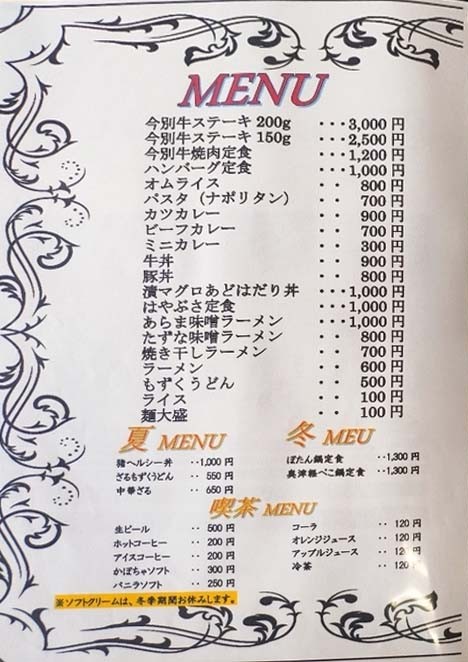 MENU
今別牛ステーキ 200g ・・・3,000 円
今別牛ステーキ 150g ・・・2,500 円
今別牛焼肉定食 ・・・1,200 円
ハンバーグ定食 ・・・1,000 円
オムライス ・・ 800 円
パスタ（ナポリタン） ・・ 700 円
カツカレー ・・ 900 円
ビーフカレー ・・ 700 円
ミニカレー ・・ 300 円
牛丼 ・・ 900 円
豚丼 ・・ 800 円
漬マグロあどはだり丼 ・・・1,000 円
はやぶさ定食 ・・・1,000 円
あらま味噌ラーメン ・・・1,000 円
たずな味噌ラーメン ・・ 800 円
焼き干しラーメン ・・ 700 円
ラーメン ・・ 600 円
もずくうどん ・・ 500 円
ライス ・・ 100 円
麺大盛 ・・ 100 円
夏 MENU
猪ヘルシー丼 ・・1,000 円
ざるもずくうどん ・・ 550 円
中華ざる ・・ 650 円
冬 MEU
ぼたん鍋定食 ・・1,300 円
奥津軽べこ鍋定食 ・・1,300 円
喫茶 MENU
生ビール ・・ 500 円
ホットコーヒー ・・ 200 円
アイスコーヒー ・・ 200 円
かぼちゃソフト ・・ 300 円
バニラソフト ・・ 250 円
コーラ ・・ 120 円
オレンジジュース ・・ 120 円
アップルジュース ・・ 120 円
冷茶 ・・ 120 円
※ソフトクリームは、冬季期間お休みします。